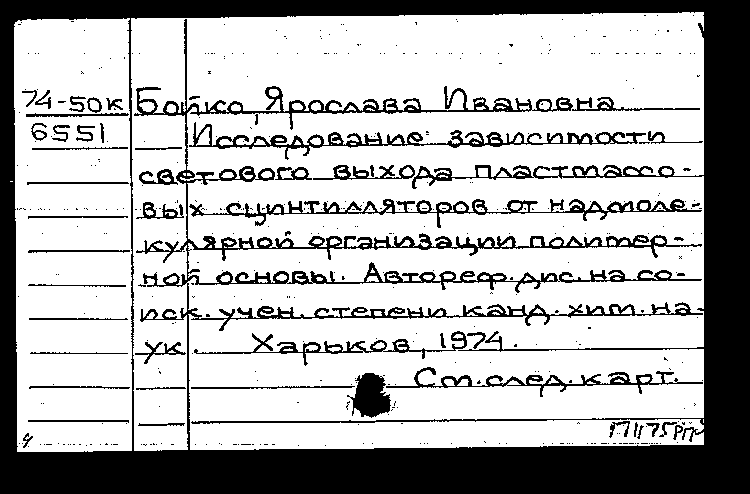 74-50к Бойко, Ярослава Ивановна.
6551 Исследование зависимости
светового выхода пластмассо-
вых сцинтилляторов от надмоле-
кулярной организации полимер-
ной основы. Автореф. дис. на со-
иск. учен. степени канд. хим. на-
ук. Харьков, 1974.
См. след. карт.